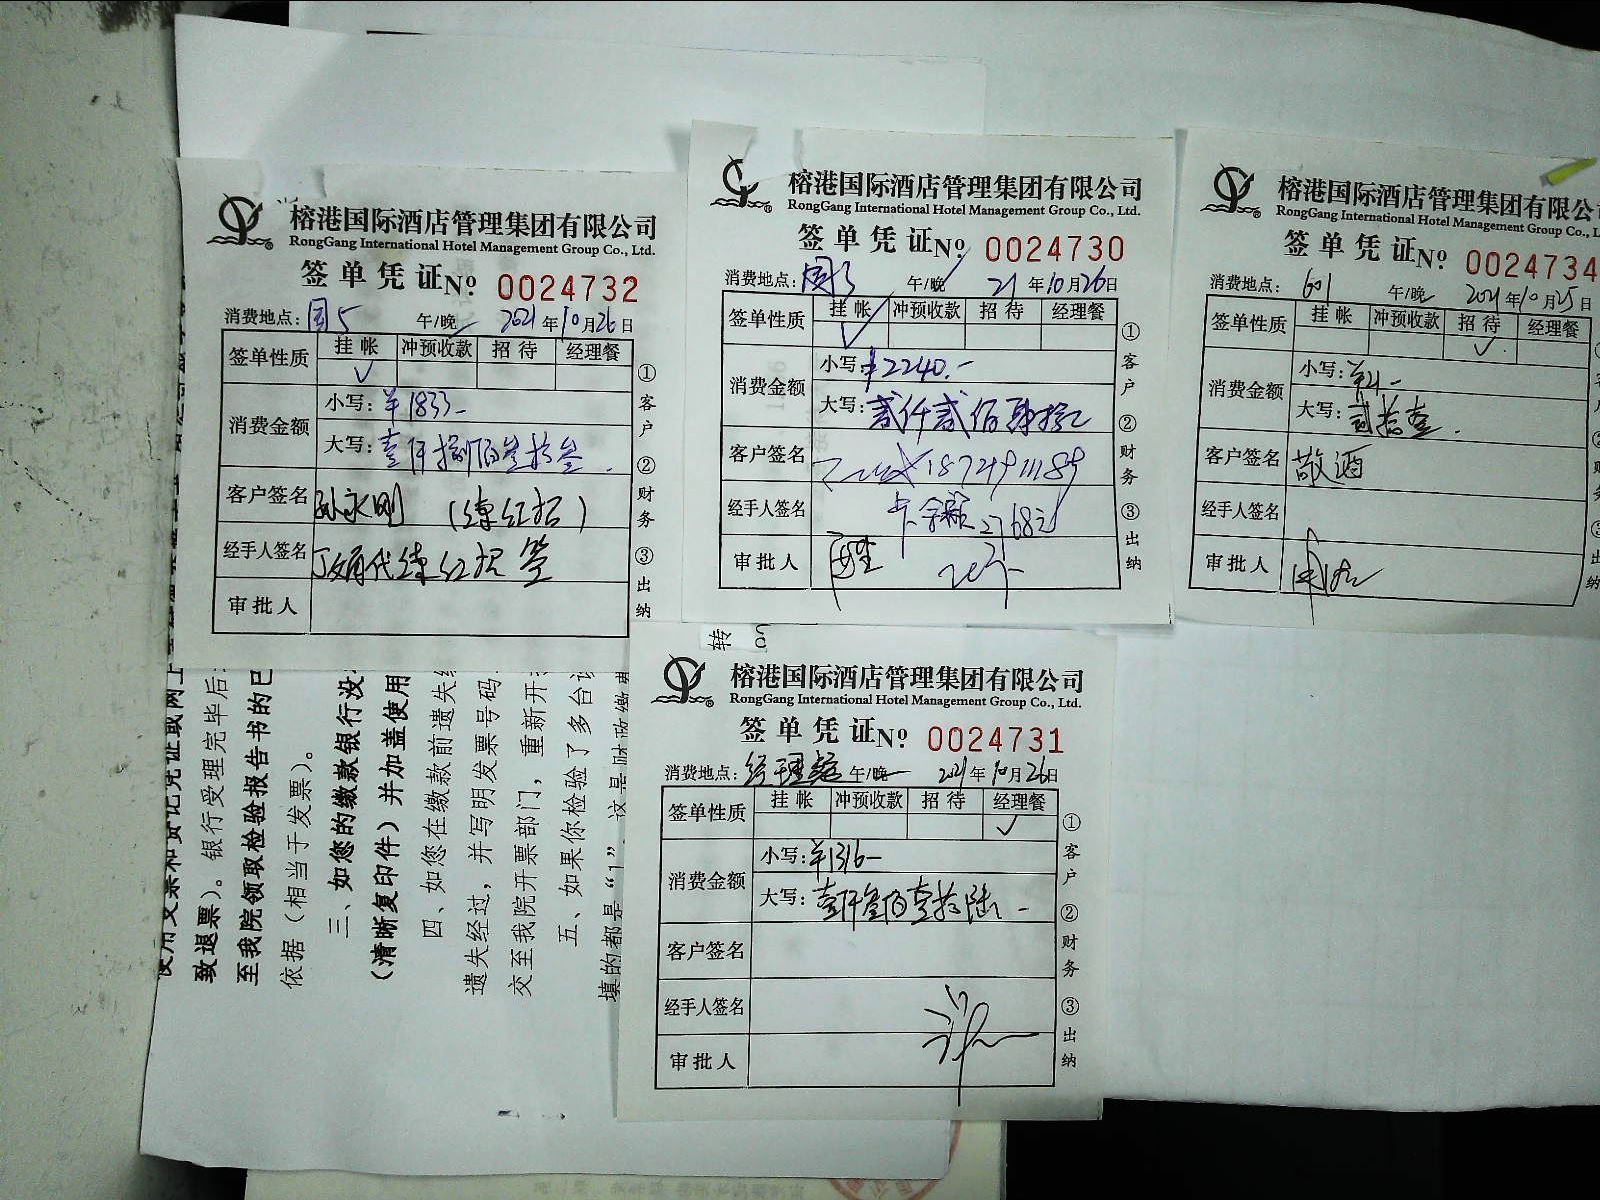 榕港国际酒店管理集团有限公司
RongGang International Hotel Management Group Co., Ltd.
签单凭证 № 0024732
消费地点: 周5 午/晚 2021年10月26日
签单性质 挂帐 冲预收款 招待 经理餐
✓
消费金额
小写: ¥1833-
大写: 壹仟捌佰叁拾叁.
客户签名 孙永刚 (练红招)
经手人签名 丁娟代练红招签
审批人
① 客户 ② 财务 ③ 出纳
榕港国际酒店管理集团有限公司
RongGang International Hotel Management Group Co., Ltd.
签单凭证 № 0024730
消费地点: 午/晚 21年10月26日
签单性质 挂帐 冲预收款 招待 经理餐
✓
消费金额
小写: ¥2240.-
大写: 贰仟贰佰肆拾元
客户签名 18749111189
经手人签名 卡余额2768元
审批人
① 客户 ② 财务 ③ 出纳
榕港国际酒店管理集团有限公司
RongGang International Hotel Management Group Co., L
签单凭证 № 0024734
消费地点: 601 午/晚 2021年10月25日
签单性质 挂帐 冲预收款 招待 经理餐
✓
消费金额
小写: ¥21-
大写: 贰拾壹.
客户签名 敬酒
经手人签名
审批人
转
榕港国际酒店管理集团有限公司
RongGang International Hotel Management Group Co., Ltd.
签单凭证 № 0024731
消费地点: 经理餐 午/晚 2021年10月26日
签单性质 挂帐 冲预收款 招待 经理餐
✓
消费金额
小写: ¥1316-
大写: 壹仟叁佰壹拾陆-
客户签名
经手人签名
审批人
① 客户 ② 财务 ③ 出纳
致退票）。银行受理完毕后
至我院领取检验报告书的已
依据（相当于发票）。
三、如您的缴款银行没
（清晰复印件）并加盖使用
四、如您在缴款前遗失
遗失经过，并写明发票号码
交至我院开票部门，重新开
五、如果你检验了多台
填的都是“1”，这是财政缴